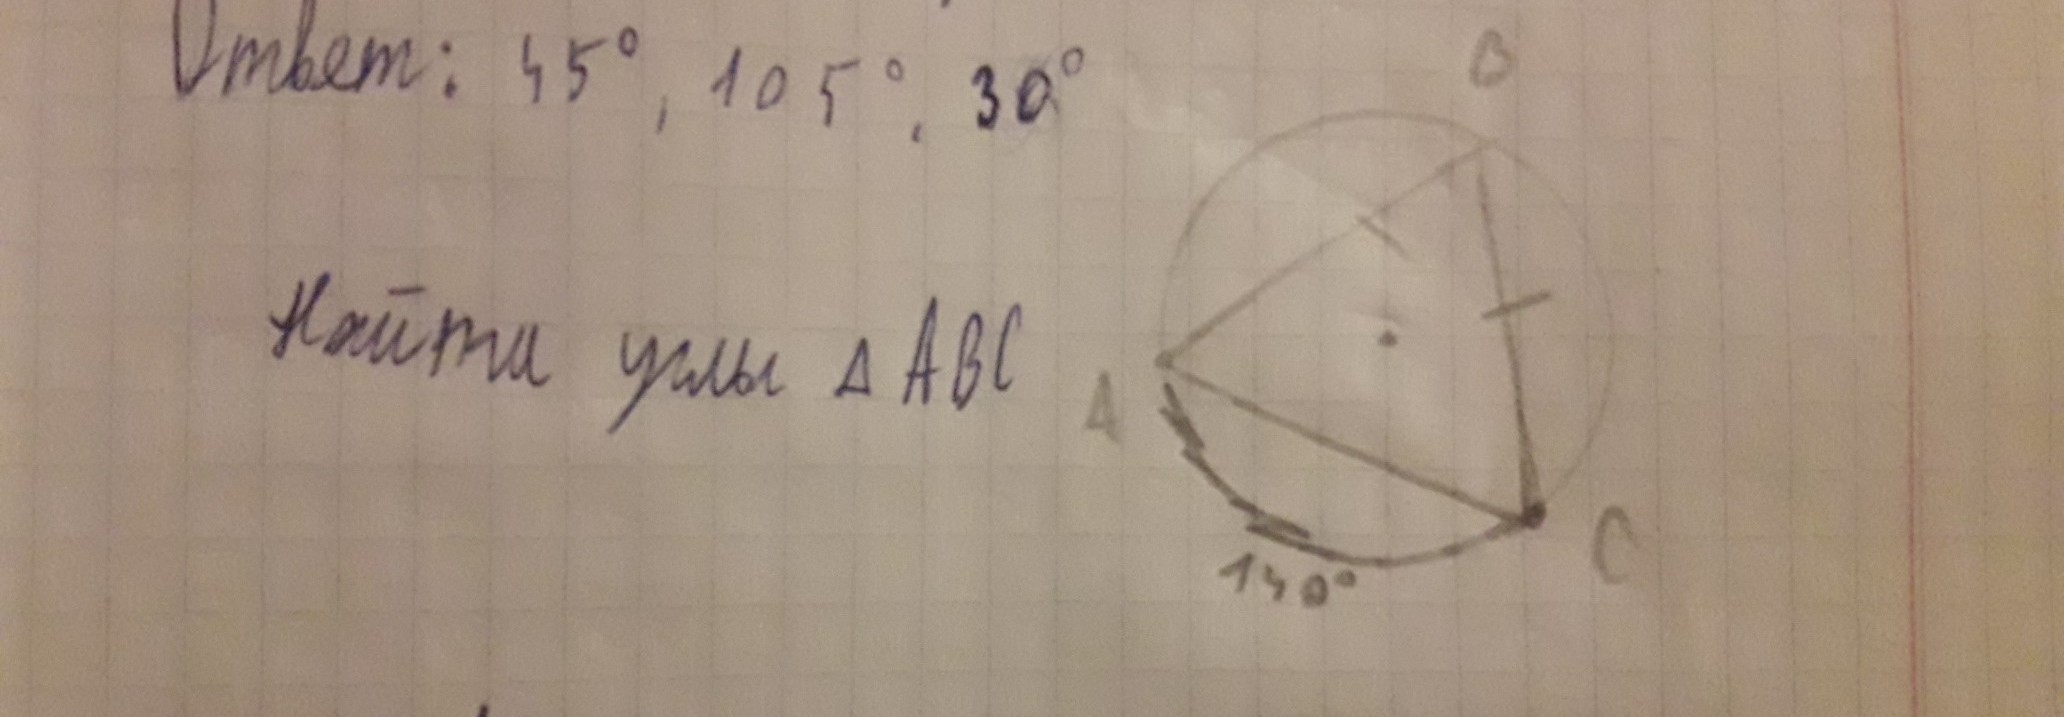 Ответ: 45°, 105°, 30°
B
Найти углы △ABC
A
C
140°